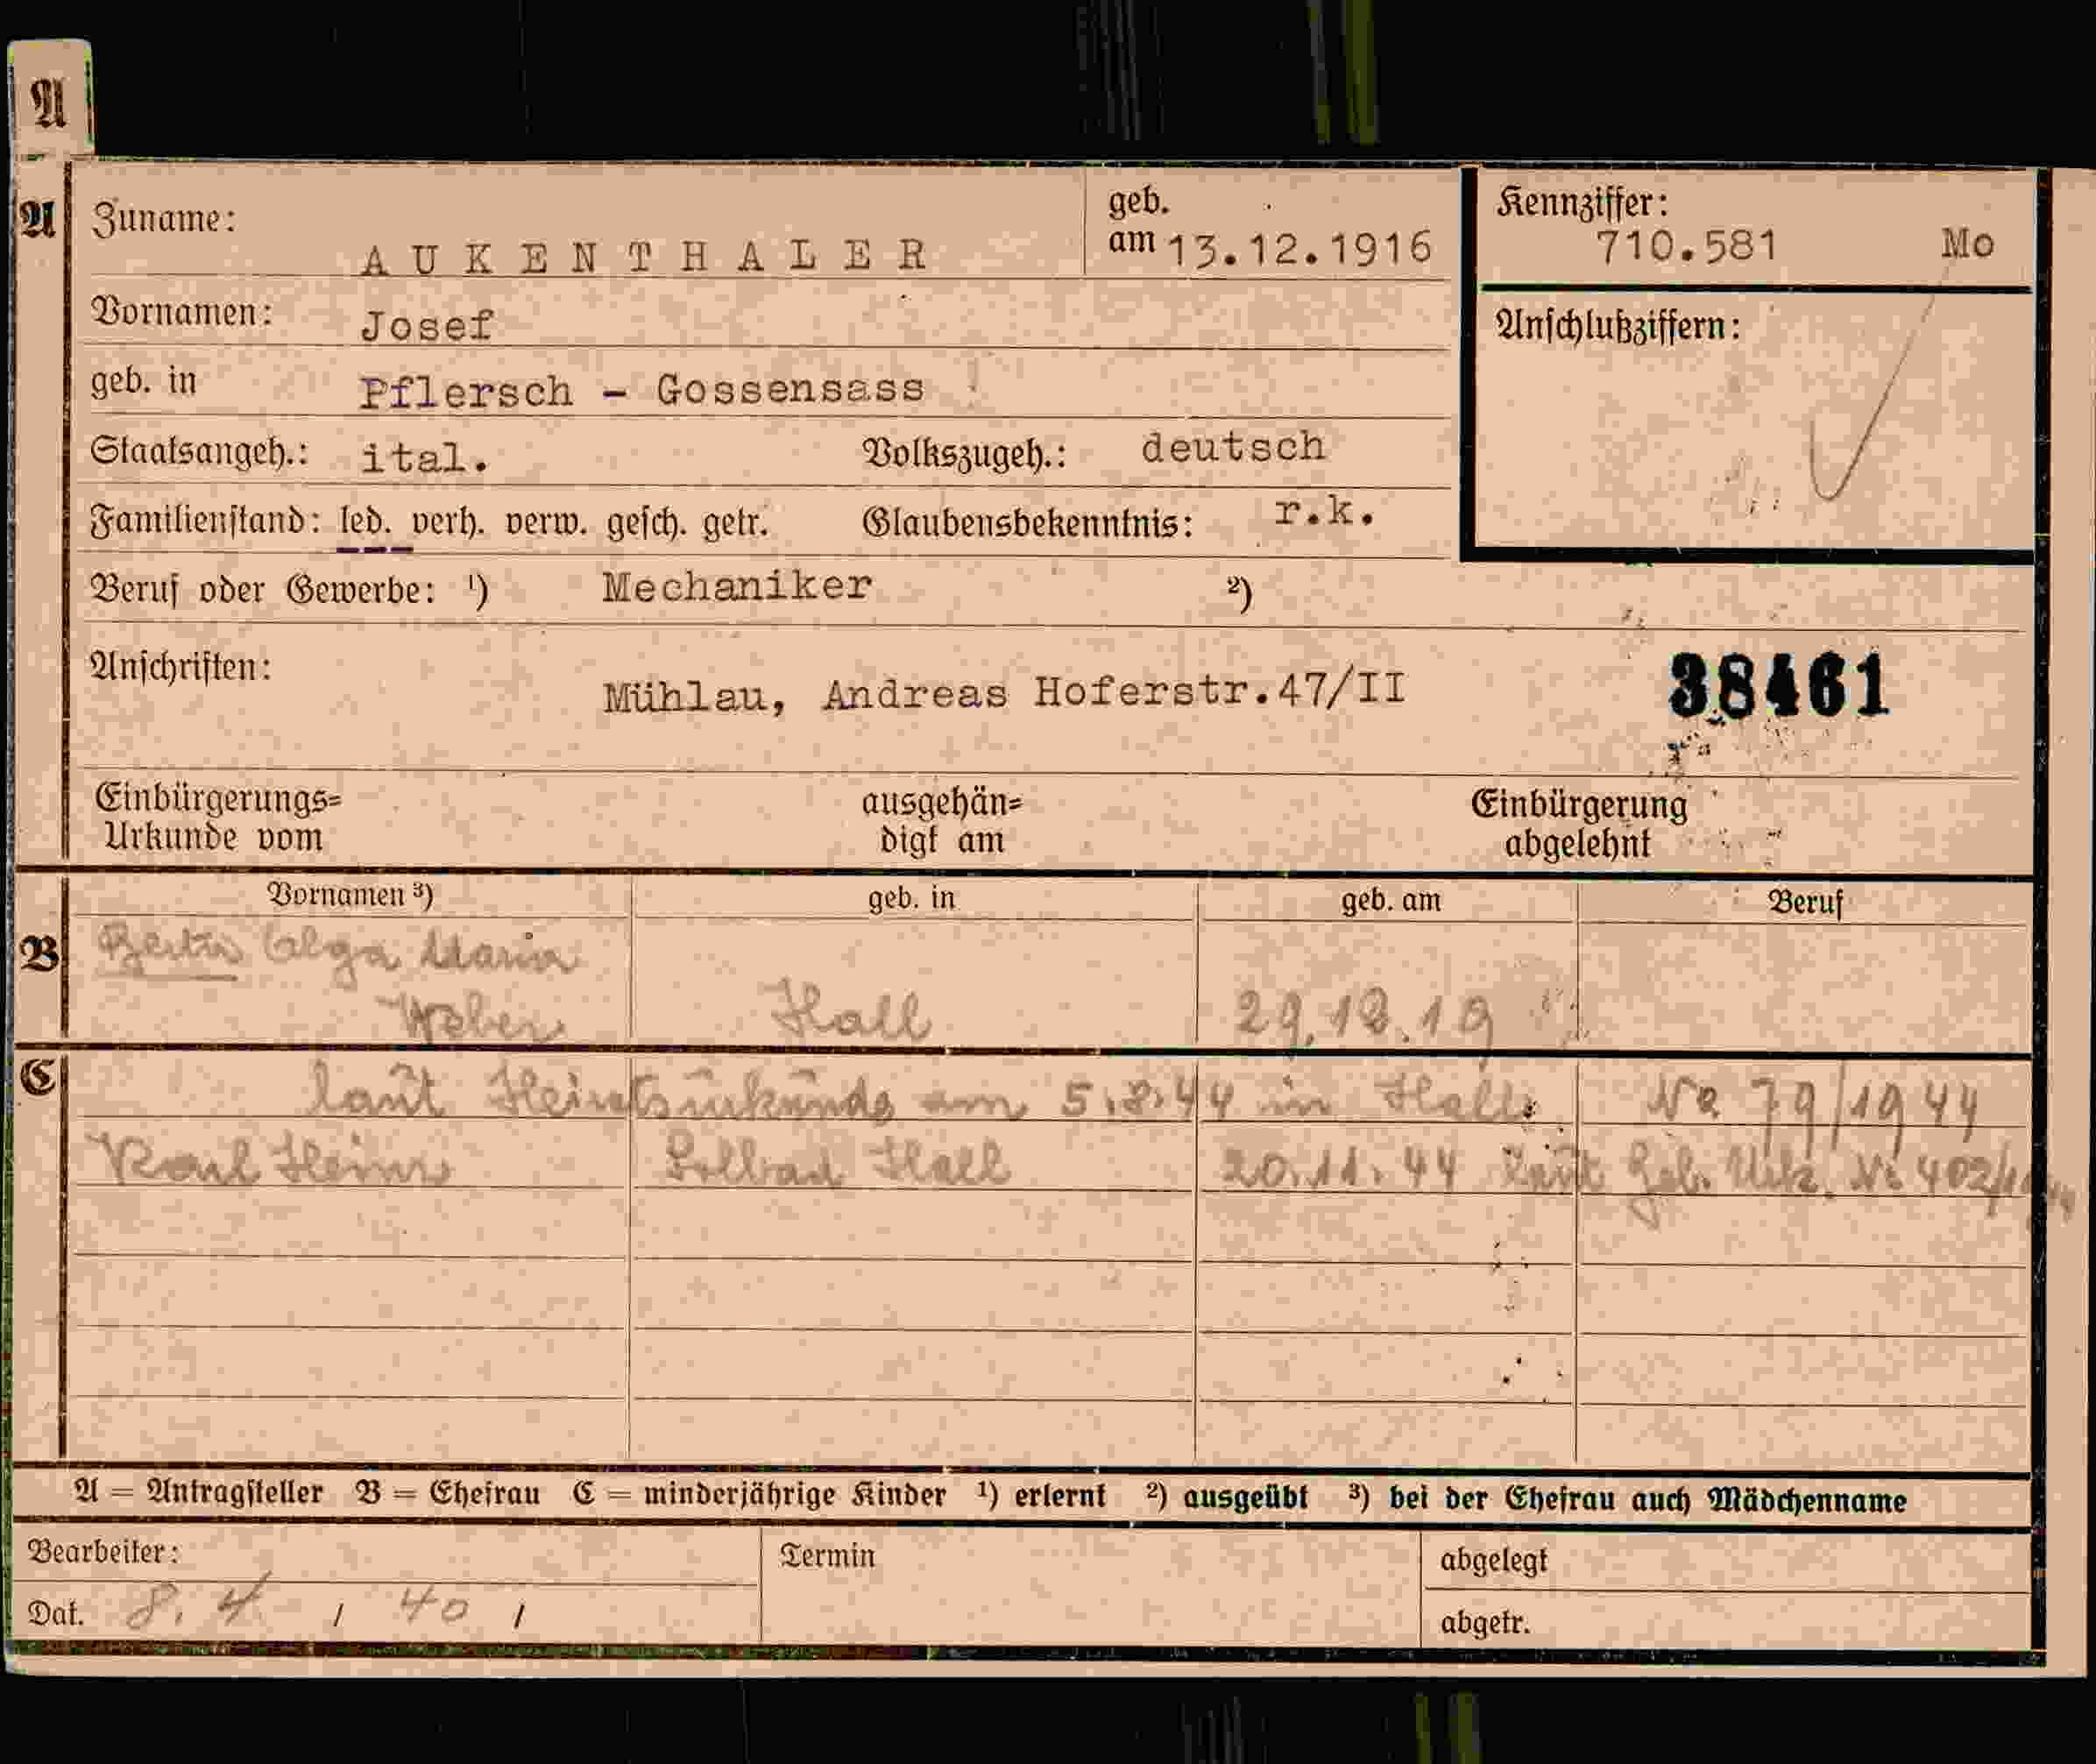 A
A Zuname: AUKENTHALER geb. am 13.12.1916 Kennziffer: 710.581 Mo
Vornamen: Josef Anschlußziffern:
geb. in Pflersch - Gossensass
Staatsangeh.: ital. Volkszugeh.: deutsch
Familienstand: led. verh. verw. gesch. getr. Glaubensbekenntnis: r.k.
Beruf oder Gewerbe: ¹) Mechaniker ²)
Anschriften: Mühlau, Andreas Hoferstr.47/II 38461
Einbürgerungs= ausgehän= Einbürgerung
Urkunde vom digt am abgelehnt
Vornamen ³) geb. in geb. am Beruf
B Olga Maria
Weber Hall 29.12.19
C laut Heiratsurkunde am 5.8.44 in Hall. No 79/1944
Karl Heinz Solbad Hall 20.11.44 Laut Geb. Urk. No 402/1944
A = Antragsteller B = Ehefrau C = minderjährige Kinder ¹) erlernt ²) ausgeübt ³) bei der Ehefrau auch Mädchenname
Bearbeiter: Termin abgelegt
Dat. 8. 4 / 40 / abgetr.